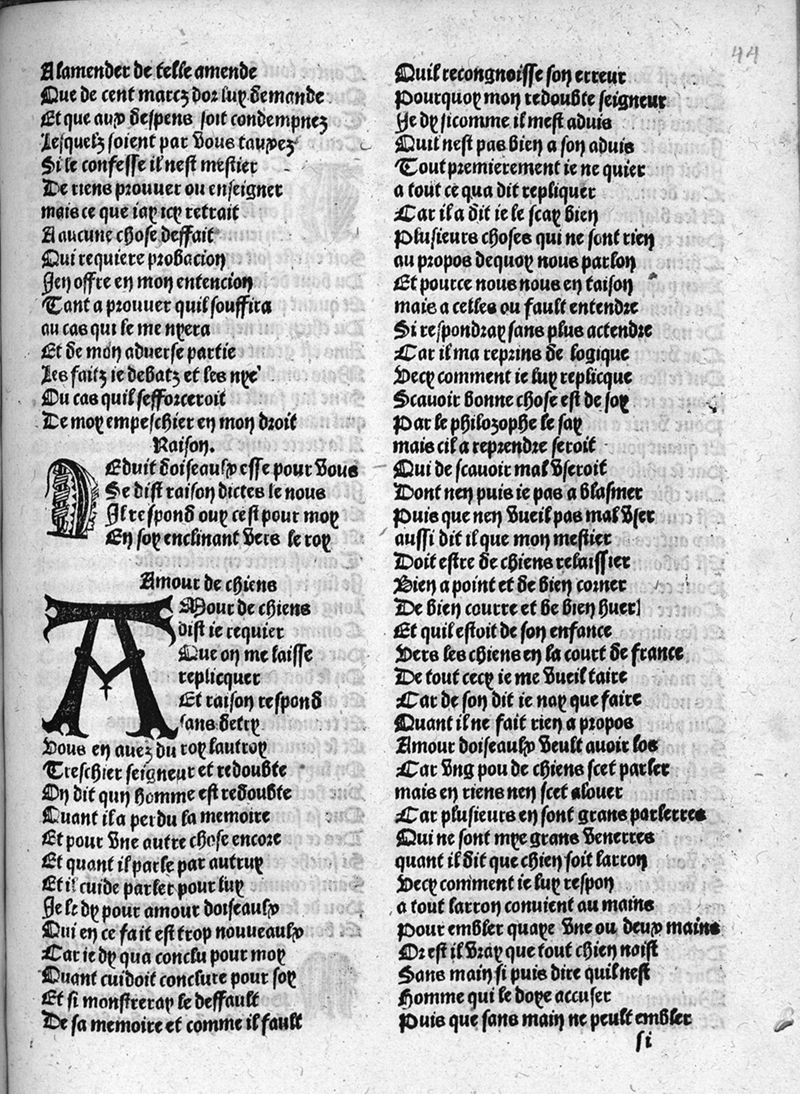 44
A lamender de telle amende
Que de cent marcz dor luy demande
Et que aux despens soit condempnez
Lesquelz soient par vous tauxez
Si le confesse il nest mestier
De riens prouver ou enseigner
mais ce que iay icy retrait
A aucune chose deffait
Qui requiere probacion
Jen offre en mon entencion
Tant a prouver quil souffira
au cas qui le me nyera
Et de mon adverse partie
Les faitz ie debatz et les nye
Ou cas quil sefforceroit
De moy empeschier en mon droit
Raison.
Deduit doiseaulx esse pour vous
Se dist raison dictes le nous
Il respond ouy cest pour moy
En soy enclinant vers le roy
Amour de chiens
AMour de chiens
dist ie requier
Que on me laisse
replicquer
Et raison respond
sans detry
Vous en avez du roy lautroy
Treschier seigneur et redoubte
On dit qun homme est redoubte
Quant il a perdu la memoire
Et pour une autre chose encore
Et quant il parle par autruy
Et il cuide parler pour luy
Je le dy pour amour doiseaulx
Qui en ce fait est trop nouveaulx
Car ie dy qua conclu pour moy
Quant cuidoit conclure pour soy
Et si monstreray le deffault
De sa memoire et comme il fault
Quil recongnoisse son erreur
Pourquoy mon redoubte seigneur
Je dy sicomme il mest advis
Quil nest pas bien a son advis
Tout premierement ie ne quier
a tout ce qua dit repliquer
Car il a dit ie le scay bien
Plusieurs choses qui ne sont rien
au propos dequoy nous parlon
Et pource nous nous en taison
mais a celles ou fault entendre
Si respondray sans plus actendre
Car il ma reprins de logique
Vecy comment ie luy replicque
Scavoir bonne chose est de soy
Par le philozophe le say
mais cil a reprendre seroit
Qui de scavoir mal useroit
Dont nen puis ie pas a blasmer
Puis que nen vueil pas mal user
aussi dit il que mon mestier
Doit estre de chiens relaissier
Bien a point et de bien corner
De bien courre et be bien huer
Et quil estoit de son enfance
Vers les chiens en la court de france
De tout cecy ie me vueil taire
Car de son dit ie nay que faire
Quant il ne fait rien a propos
Amour doiseaulx veult avoir los
Car ung pou de chiens scet parler
mais en riens nen scet alouer
Car plusieurs en sont grans parlerres
Qui ne sont mye grans venerres
quant il dit que chien soit larron
Vecy comment ie luy respon
a tout larron convient au mains
Pour embler quaye une ou deux mains
Or est il vray que tout chien naist
Sans main si puis dire quil nest
Homme qui le doye accuser
Puis que sans main ne peult embler
si